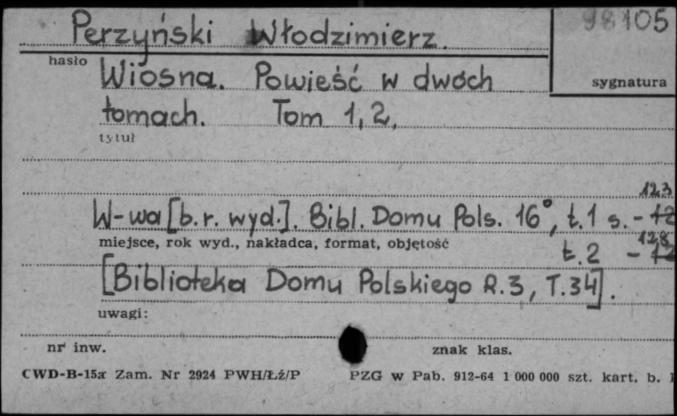 Perzyński Włodzimierz.
98105
hasło
sygnatura
Wiosna. Powieść w dwóch
tomach. Tom 1, 2.
tytuł
123
W-wa [b.r. wyd.]. Bibl. Domu Pols. 16°, t.1 s. -
miejsce, rok wyd., nakładca, format, objętość
128
t.2 -
[Biblioteka Domu Polskiego R.3, T.34].
uwagi:
nr inw. znak klas.
CWD-B-15a Zam. Nr 2924 PWH/Łź/P PZG w Pab. 912-64 1 000 000 szt. kart. b.